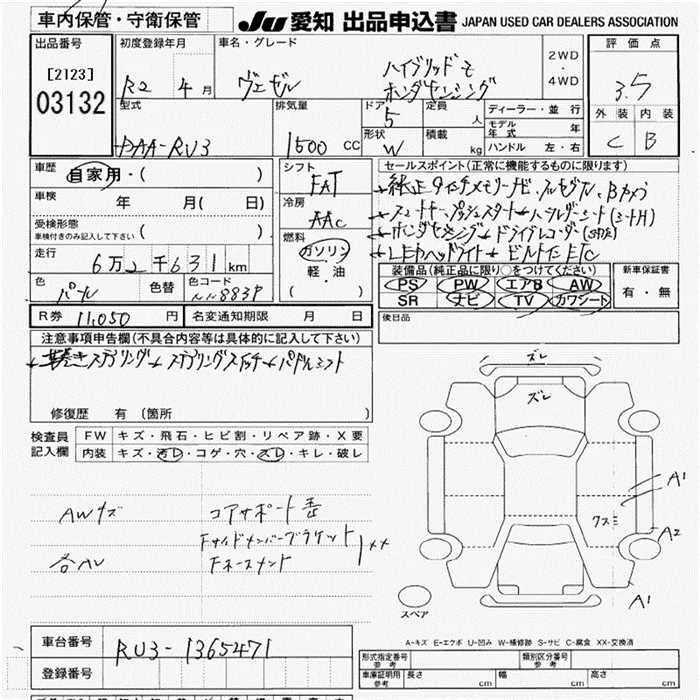 車内保管・守衛保管
JU 愛知 出品申込書 JAPAN USED CAR DEALERS ASSOCIATION
出品番号 [2123] 03132
初度登録年月 R2 年 4 月
車名・グレード ヴェゼル ハイブリッドZ
ホンダセンシング
2WD ・ 4WD
評価点 3.5
外装 内装
C B
型式 DAA-RU3
排気量 1500 CC
ドア 5
形状 W
定員 人
積載 kg
ディーラー・並行
モデル年式 年
ハンドル 左・右
車歴 自家用・( )
車検 年 月( 日)
受検形態 車検付きのみ記入して下さい ( )
走行 6万2千631 km
色 パール 色替 色コード NH883P
シフト FAT
冷房 AAC
燃料 ガソリン
軽・油
( )
セールスポイント(正常に機能するものに限ります)
純正9インチメモリーナビ、フルセグTV、Bカメラ
スマートキー、プッシュスタート ハーフレザーシート(シートH)
ホンダセンシング ドライブレコーダー
LEDヘッドライト ビルトインETC
装備品(純正品に限り○をつけてください)
PS PW エアB AW
SR ナビ TV カワシート
新車保証書
有・無
後日品
R券 11,050 円 名変通知期限 月 日
注意事項申告欄(不具合内容等は具体的に記入して下さい)
革巻きステアリング ステアリングスイッチ パドルシフト
修復歴 有 (箇所 )
検査員記入欄
FW キズ・飛石・ヒビ割・リペア跡・X要
内装 キズ・汚レ・コゲ・穴・スレ・キレ・破レ
AWキズ
コアサポート歪
Fサイドメンバーブラケット
Fホースメント
XX
ズレ
ズレ
A1
クスミ
A2
A1
スペア
A-キズ E-エクボ U-凹み W-補修跡 S-サビ C-腐食 XX-交換済
車台番号 RU3-1365471
登録番号
形式指定番号 参考 類別区分番号 参考
車庫証明用 参考 長さ cm 幅 cm 高さ cm